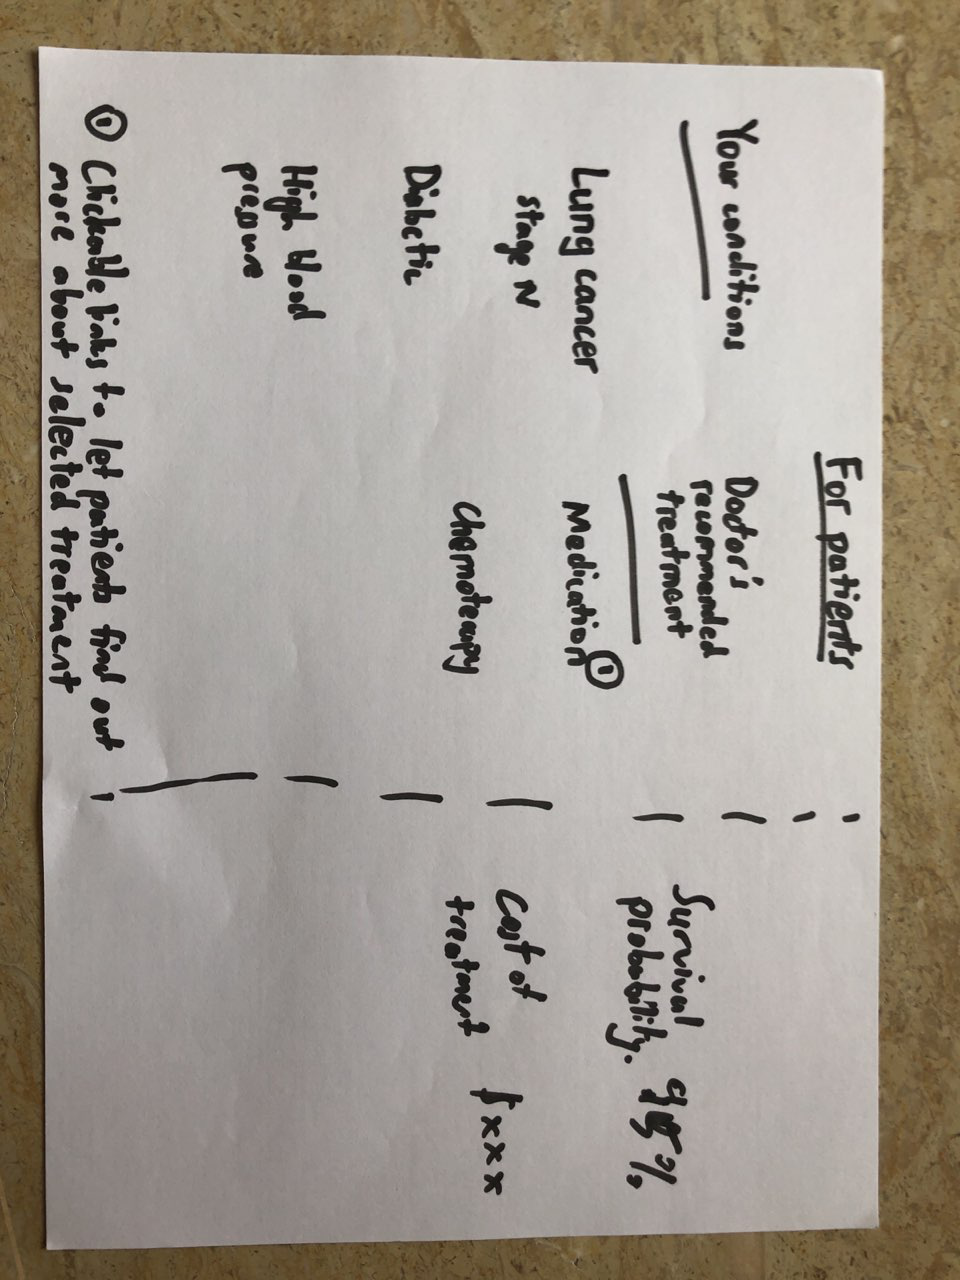 For patients
Your conditions
Lung cancer
stage N
Diabetic
High blood
pressure
Doctor's
recommended
treatment
Medication ①
Chemoterapy
Survival
probability. 95%
Cost of
treatment $xxx
① Clickable links to let patients find out
more about selected treatment